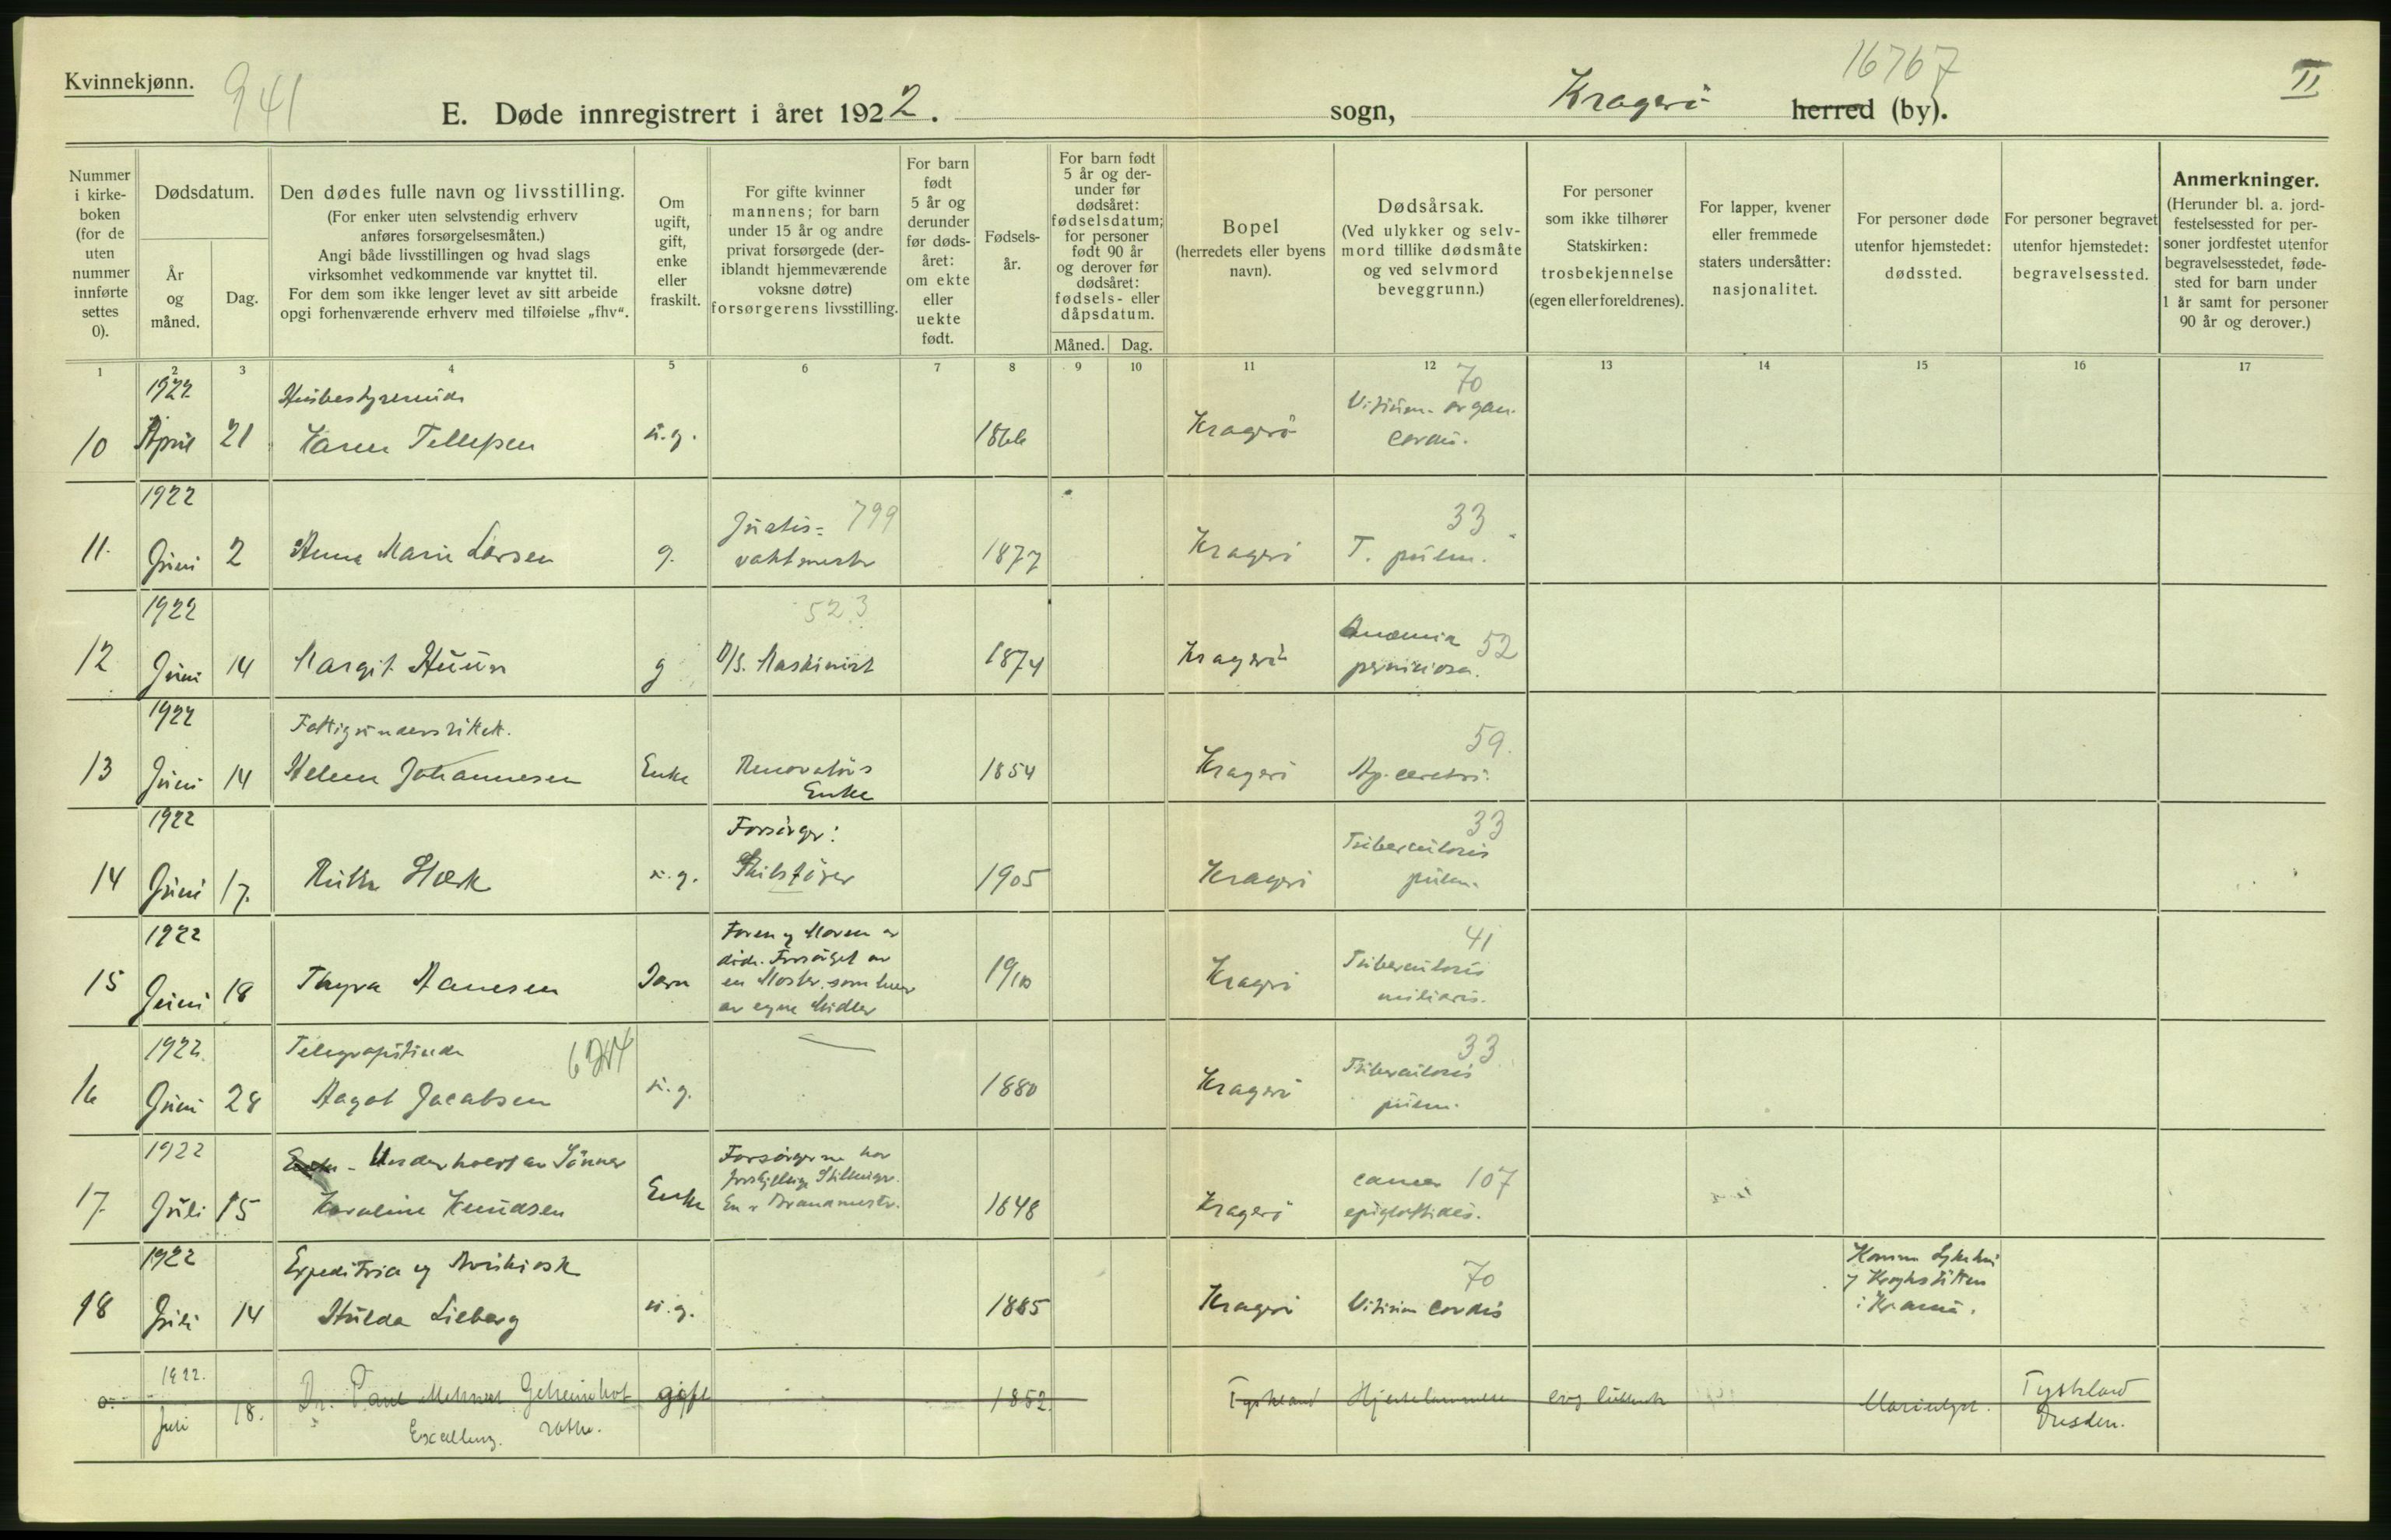 Kvinnekjønn.
941
16767
II
E. Døde innregistrert i året 1922.
sogn,
Kragerö
herred (by).
Nummer
i kirke-
boken
(for de
uten
nummer
innførte
settes
0).
Dødsdatum.
År
og
måned.
Dag.
Den dødes fulle navn og livsstilling.
(For enker uten selvstendig erhverv
anføres forsørgelsesmåten.)
Angi både livsstillingen og hvad slags
virksomhet vedkommende var knyttet til.
For dem som ikke lenger levet av sitt arbeide
opgi forhenværende erhverv med tilføielse „fhv“.
Om
ugift,
gift,
enke
eller
fraskilt.
For gifte kvinner
mannens; for barn
under 15 år og andre
privat forsørgede (der-
iblandt hjemmeværende
voksne døtre)
forsørgerens livsstilling.
For barn
født
5 år og
derunder
før døds-
året:
om ekte
eller
uekte
født.
Fødsels-
år.
For barn født
5 år og der-
under før
dødsåret:
fødselsdatum;
for personer
født 90 år
og derover før
dødsåret:
fødsels- eller
dåpsdatum.
Måned. Dag.
Bopel
(herredets eller byens
navn).
Dødsårsak.
(Ved ulykker og selv-
mord tillike dødsmåte
og ved selvmord
beveggrunn.)
For personer
som ikke tilhører
Statskirken:
trosbekjennelse
(egen eller foreldrenes).
For lapper, kvener
eller fremmede
staters undersåtter:
nasjonalitet.
For personer døde
utenfor hjemstedet:
dødssted.
For personer begravet
utenfor hjemstedet:
begravelsessted.
Anmerkninger.
(Herunder bl. a. jord-
festelsessted for per-
soner jordfestet utenfor
begravelsesstedet, føde-
sted for barn under
1 år samt for personer
90 år og derover.)
1 2 3 4 5 6 7 8 9 10 11 12 13 14 15 16 17
1922 Husbestyrerinde 70
Vitium organ.
10 April 21 Karen Tellefsen u.g. 1866 Kragerö
cordis.
1922
Justis= 799 33
11. Juni 2 Anna Marie Larsen g. vaktmester 1877 Kragerö T. pulm.
1922 523
Anæmia 52
12 Juni 14 Margit Stuur g D/S. Maskinist 1874 Kragerö perniciosa.
1922 Fattigunderstöttet. 59.
13 Juni 14 Helene Johannesen Enke Renovatörs 1854 Kragerö Ap. cerebri.
Enke
1922 Forsörger: 33
Tuberculosis
14 Juni 17. Ruth Stærk u.g. 1905 Kragerö pulm.
1922 Faren og Moren er 41
död. Forsörget av Tuberculosis
15 Juni 18 Thyra Aanesen Barn en Moster, som lever 1910 Kragerö miliaris.
av egne Midler
1922. Telegrafistinde 33
Tuberculosis
16 Juni 28 Aagot Jacobsen u.g. 1880 Kragerö pulm.
1922 Enke - Underholdt av Sönner Forsörgerne har
forskjellige Stillinger. cancer 107
17. Juli 15 Karoline Knudsen Enke En er Brandmester. 1848 Kragerö epiglottidis.
1922 Expeditrice og Aviskiosk 70 Komm. Sykehus
18 Juli 14 Hulda Lieberg u.g. 1885 Kragerö Vitium Cordis
1922.
0. Juli 18. Dr. Paul Mehnert Geheimhof gift 1852. Tyskland Hjertelammelse evg. luthersk Tyskland
Excelleng. rath. Dresden.